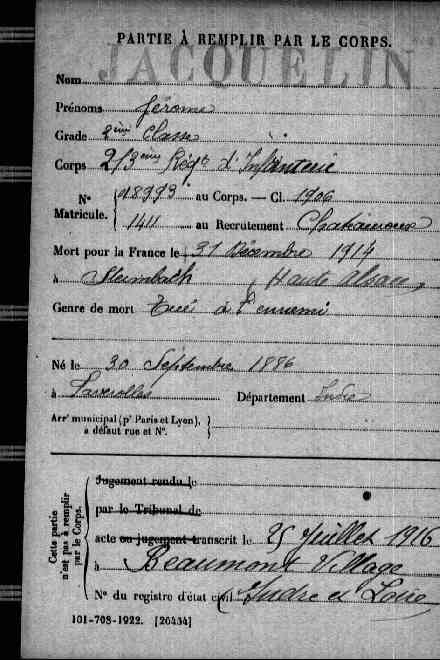 PARTIE À REMPLIR PAR LE CORPS.
JACQUELIN
Nom
Prénoms Jérome
Grade 2ème Classe
Corps 213ème Régt d'Infanterie
No 18993 au Corps. — Cl. 1906
Matricule. 1411 au Recrutement Chateauroux
Mort pour la France le 31 Décembre 1914
à Steinbach (Haute Alsace)
Genre de mort Tué à l'ennemi
Né le 30 Septembre 1886
à Faverolles Département Indre
Arrt municipal (pr Paris et Lyon),
à défaut rue et No.
Cette partie
n'est pas à remplir
par le Corps.
Jugement rendu le
par le Tribunal de
acte ou jugement transcrit le 25 Juillet 1916
à Beaumont Village
No du registre d'état civil (Indre et Loire
101-708-1922. [26434]